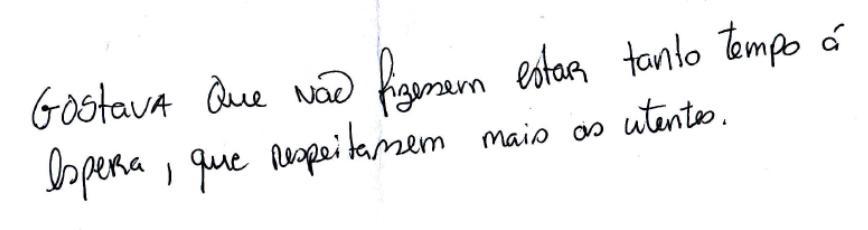 Gostava que não fizessem estar tanto tempo á
espera, que respeitassem mais os utentes.